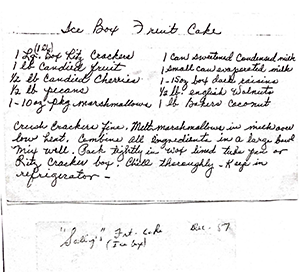 Ice Box Fruit Cake
(1 lb)
1 Lg. Box Ritz Crackers
1 lb Candied Fruit
½ lb Candied Cherries
½ lb pecans
1-10 oz pkg marshmallows
1 can sweetened Condensed milk
1 small can evaporated milk
1-15 oz box dark raisins
½ lb. english Walnuts
1 lb Bakers Coconut
Crush Crackers fine. Melt marshmallows in milk over
low heat. Combine all ingredients in a large bowl
Mix well. Pack tightly in wax lined tube pan or
Ritz Cracker box. Chill thoroughly - Keep in
refrigerator -
Frt. Cake
(Ice Box)
Dec - 57